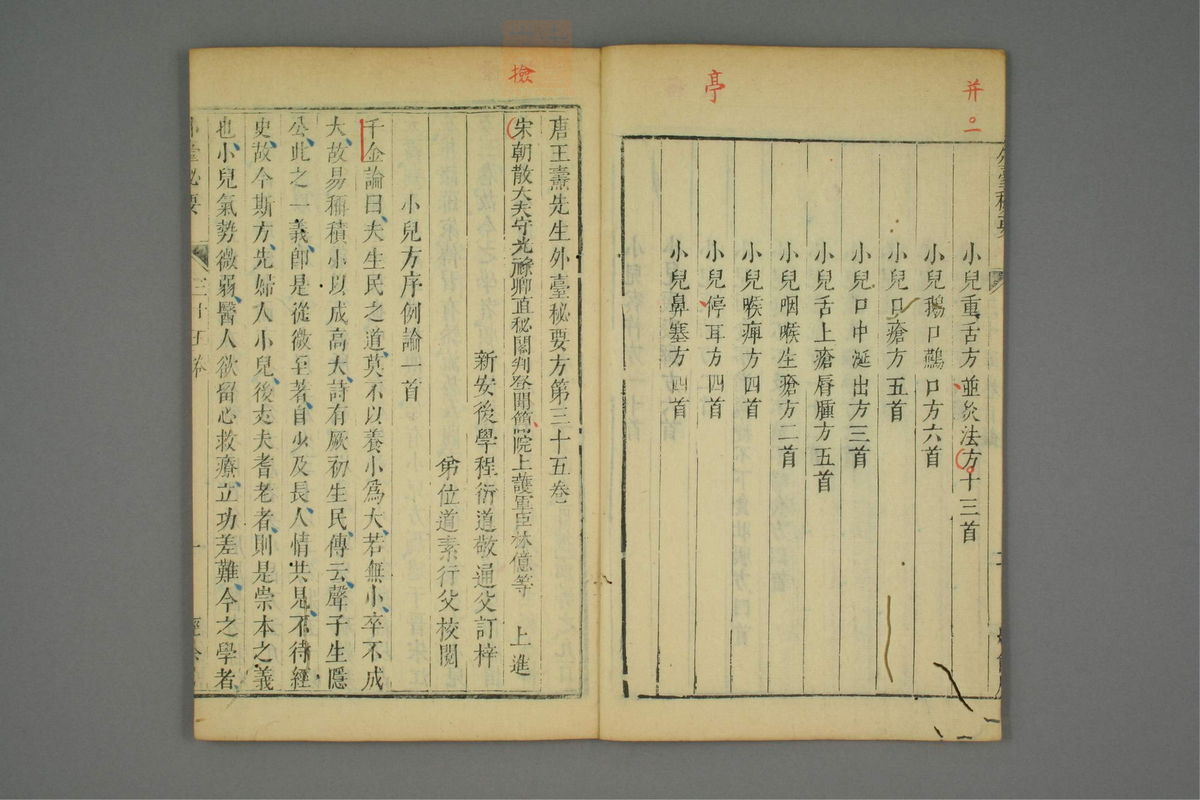 并
亭
小兒重舌方並灸法方十三首
小兒鵝口鷰口方六首
小兒口瘡方五首
小兒口中涎出方三首
小兒舌上瘡唇腫方五首
小兒咽喉生瘡方二首
小兒喉痺方四首
小兒停耳方四首
小兒鼻塞方四首
撿
唐王燾先生外臺秘要方第三十五卷
宋朝散大夫守光祿卿直秘閣判登聞簡院上護軍臣林億等 上進
新安後學程衍道敬通父訂梓
弟位道素行父校閱
小兒方序例論一首
千金論曰夫生民之道莫不以養小為大若無小卒不成
大故易稱積小以成高大詩有厥初生民傳云聲子生隱
公此之一義卽是從微至著自少及長人情共見不待經
史故今斯方先婦人小兒後丈夫耆老者則是崇本之義
也小兒氣勢微弱醫人欲留心救療立功差難今之學者
三十五卷